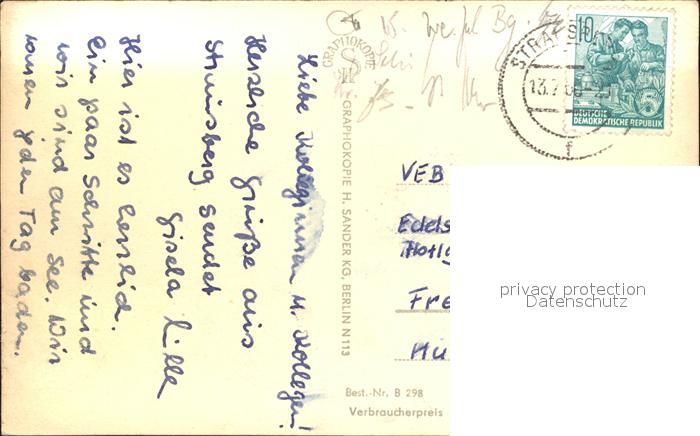 Liebe Kolleginnen u. Kollegen!
Herzliche Grüße aus
Strausberg sendet
Gisela Lille
Hier ist es herrlich.
Ein paar Schritte und
wir sind am See. Wir
jeden Tag baden.
GRAPHOKOPIE
GRAPHOKOPIE H. SANDER KG. BERLIN N 113
STRAUSB
13.7.60
10
DEUTSCHE
DEMOKRATISCHE REPUBLIK
VEB
Edels
Fre
Hü
privacy protection
Datenschutz
Best.-Nr. B 298
Verbraucherpreis